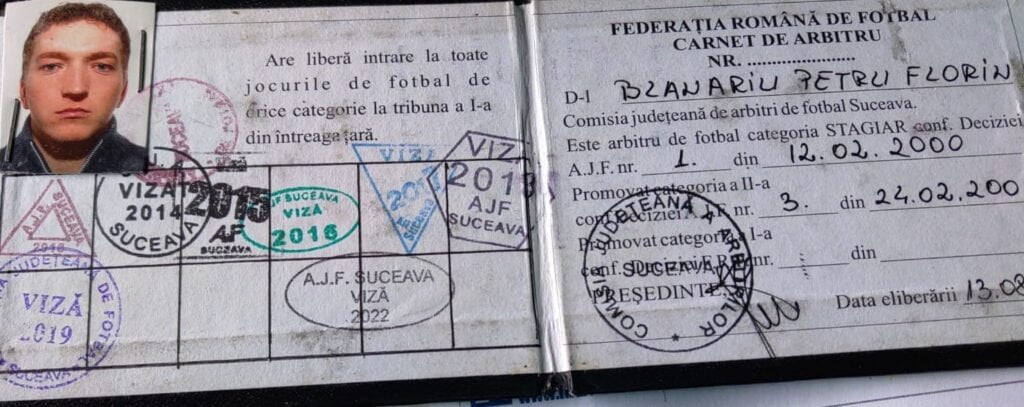 Are liberă intrare la toate
jocurile de fotbal de
orice categorie la tribuna a I-a
din întreaga țară.
VIZAT
2014
SUCEAVA
2015
AJF
SUCEAVA
AJF SUCEAVA
VIZĂ
2016
VIZĂ
2017
VIZĂ
2018
AJF
SUCEAVA
A.J.F.
SUCEAVA
JUDEȚEANĂ DE FOTBAL
VIZĂ
2019
SUCEAVA
A.J.F. SUCEAVA
VIZĂ
2022
FEDERAȚIA ROMÂNĂ DE FOTBAL
CARNET DE ARBITRU
NR. .....................
D-l BLANARIU PETRU FLORIN
Comisia județeană de arbitri de fotbal Suceava.
Este arbitru de fotbal categoria STAGIAR conf. Deciziei
A.J.F. nr. 1. din 12.02.2000
Promovat categoria a II-a
conf. Deciziei A.J.F. nr. 3. din 24.02.200
Promovat categoria I-a
conf. Deciziei F.R.F. nr. din
PREȘEDINTE,
Data eliberării 13.08
COMISIA JUDEȚEANĂ A ARBITRILOR
SUCEAVA